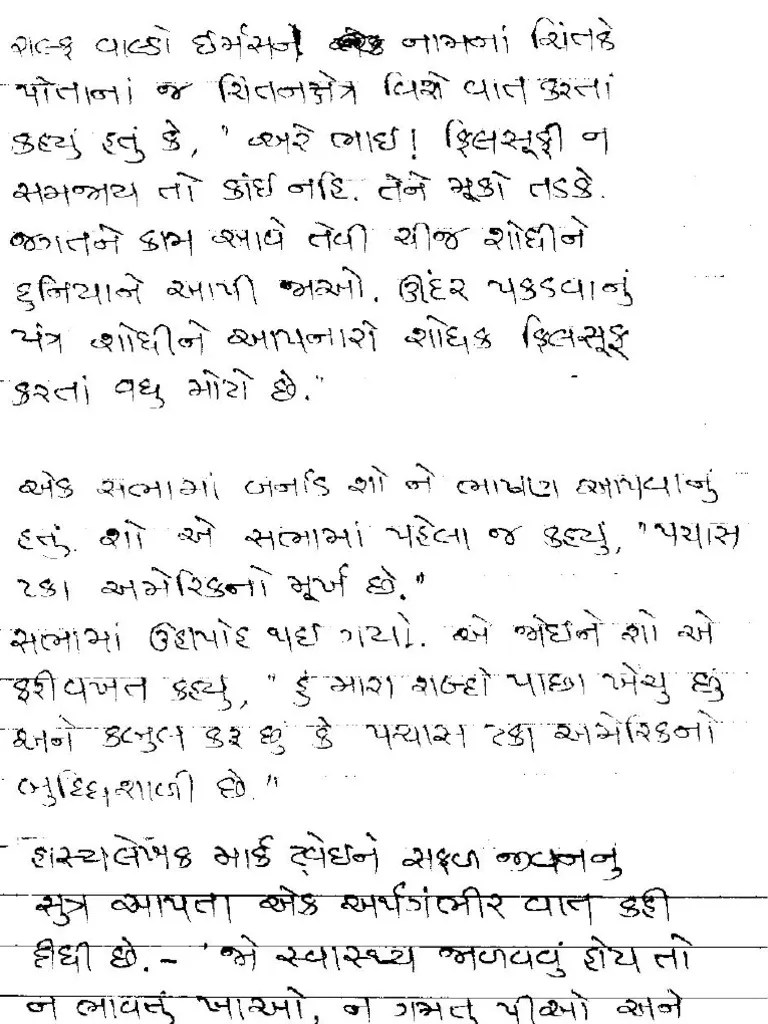 રાલ્ફ વાલ્ડો ઈર્મસને નામનાં ચિંતકે
પોતાનાં જ ચિંતનક્ષેત્ર વિશે વાત કરતાં
કહ્યું હતું કે, "અરે ભાઈ! ફિલસૂફી ન
સમજાય તો કાંઈ નહિ. તેને મૂકો તડકે.
જગતને કામ આવે તેવી ચીજ શોધીને
દુનિયાને આપી જાઓ. ઊંદર પકડવાનું
યંત્ર શોધીને આપનારો શોધક ફિલસૂફ
કરતાં વધુ મોટો છે."
એક સભામાં બર્નાડ શો ને ભાષણ આપવાનું
હતું. શો એ સભામાં પહેલા જ કહ્યું, "પચાસ
ટકા અમેરિકનો મૂર્ખ છે."
સભામાં ઉહાપોહ થઈ ગયો. એ જોઈને શો એ
ફરીવખત કહ્યુ, "હું મારા શબ્દો પાછા ખેચુ છું
અને કબુલ કરૂ છું કે પચાસ ટકા અમેરિકનો
બુદ્ધિશાળી છે."
હાસ્યલેખક માર્ક ટ્વેઈને સફળ જીવનનુ
સુત્ર આપતા એક અર્થગંભીર વાત કહી
દીધી છે. - 'જો સ્વાસ્થ્ય જાળવવું હોય તો
ન ભાવતું ખાઓ, ન ગમતુ પીઓ અને